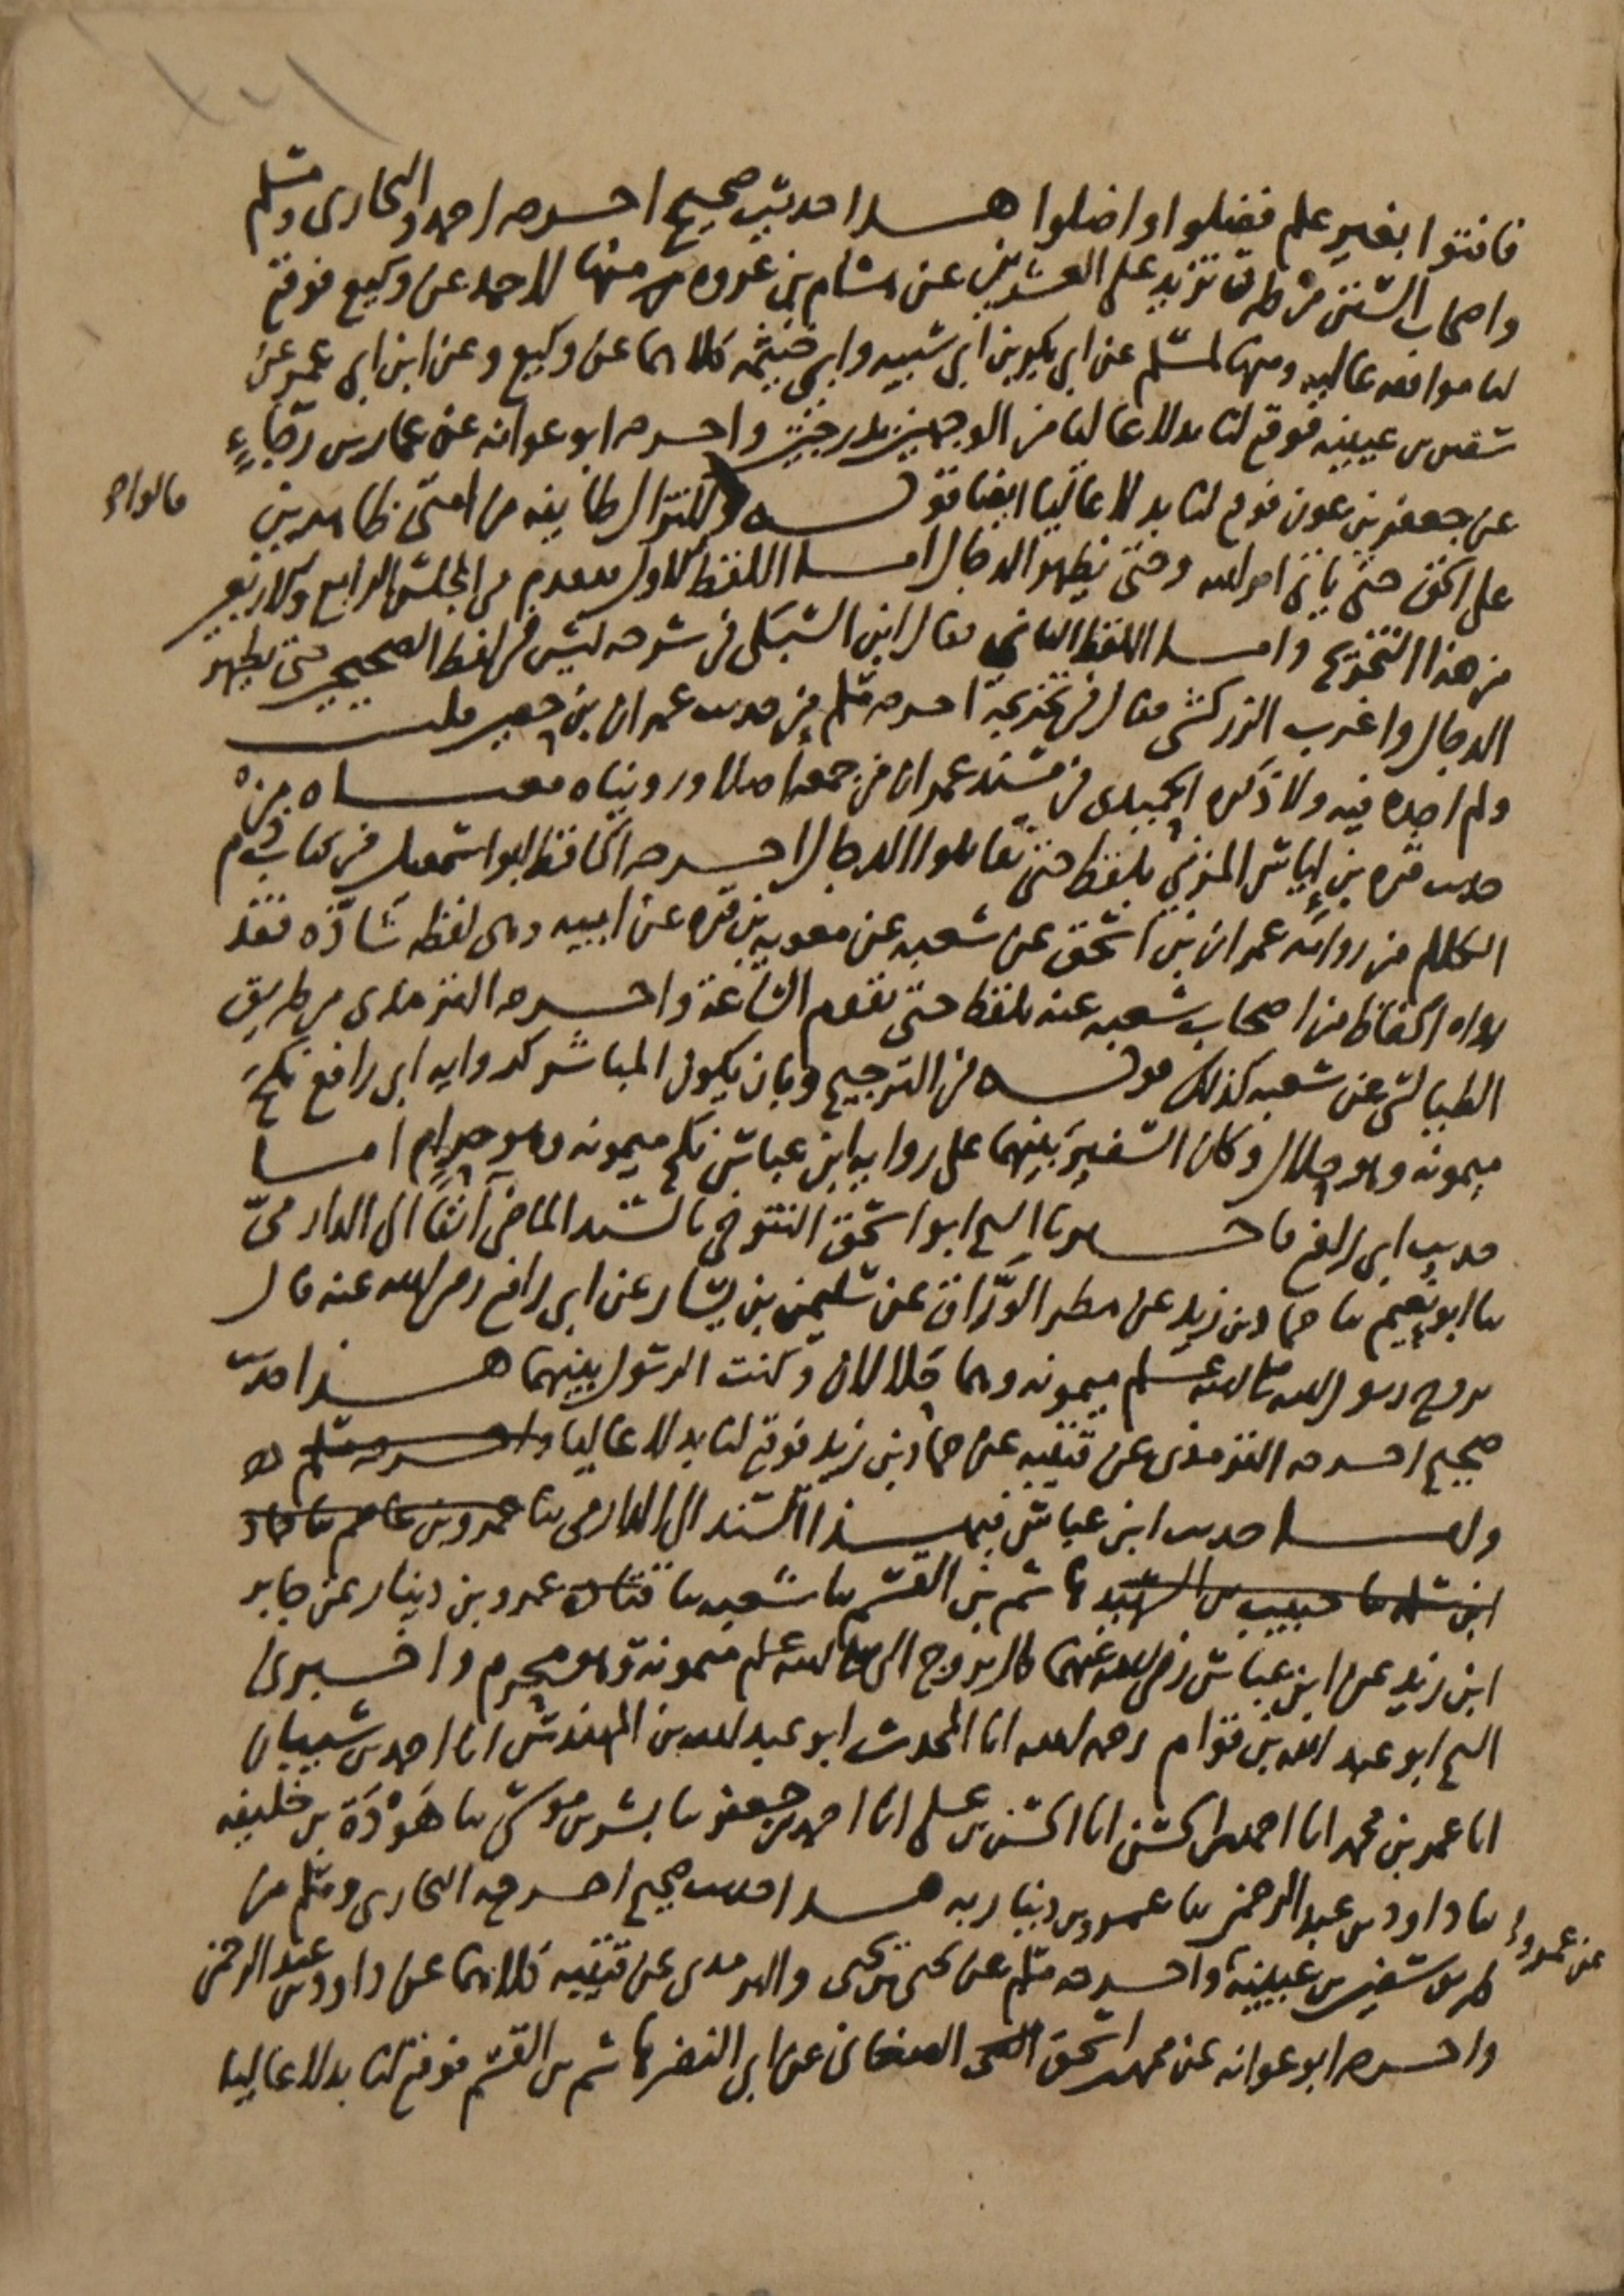 فافتوا بغير علم فضلوا واضلوا هذا حديث صحيح اخرجه احمد والبخارى ومسلم
واصحاب السنن من طرق تزيد على العشرين عن هشام بن عروه منها لاحمد عن وكيع فوقع
لنا موافقه عاليه ومنها لمسلم عن ابى بكر بن ابى شيبه وابى خيثمه كلاهما عن وكيع وعن ابن ابى عمر عن
سفين بن عيينه فوقع لنا بدلا عاليا من الوجهين بدرجتين واخرجه ابو عوانه عن عمار بن رجاء
عن جعفر بن عون فوقع لنا بدلا عاليا ايضا قوله ولا تزال طائفه من امتى ظاهرين
على الحق حتى ياتى امر الله وحتى يظهر الدجال اما اللفظ الاول فتقدم فى المجلس الرابع والاربعين
من هذا التخريج واما اللفظ الثانى فقال ابن السبكى فى شرحه ليس فى لفظ الصحيحين حتى يظهر
الدجال واغرب الزركشى فقال فى تخريجه اخرجه مسلم من حديث عمران بن حصين قلت
ولم اجده فيه ولا ذكره الحميدى فى مسند عمران من جمعه اصلا وروينا معناه من
حديث قره بن اياس المزنى بلفظ حتى تقاتلوا الدجال اخرجه الحافظ ابو اسمعيل فى كتاب ذم
الكلام من روايه عمران بن اسحق عن شعبه عن معويه بن قره عن ابيه وهى لفظه شاذه فقد
رواه الحفاظ من اصحاب شعبه عنه بلفظ حتى تقوم الساعة واخرجه الترمذى من طريق
الطيالسى عن شعبه كذلك قوله فى الترجيح وبان يكون المباشر كروايه ابى رافع نكح
ميمونه وهو حلال وكان السفير بينهما على روايه ابن عباس نكح ميمونه وهو حرام اما
حديث ابى رافع فاخبرنا الشيخ ابو اسحق التنوخى بالسند الماضى آنفا الى الدارمى
ثنا ابو نعيم ثنا حماد بن زيد عن مطر الوراق عن سليمن بن يسار عن ابى رافع رضى الله عنه قال
تزوج رسول الله صلى الله عليه وسلم ميمونه وهما حلالان وكنت الرسول بينهما هذا حديث
صحيح اخرجه الترمذى عن قتيبه عن حماد بن زيد فوقع لنا بدلا عاليا واخرجه مسلم
واما حديث ابن عباس فبهذا السند الى الدارمى ثنا عمرو بن عاصم ثنا حماد
ابن سلمه ثنا حبيب بن الشهيد هاشم بن القسم ثنا شعبه ثنا قتاده عمرو بن دينار عن جابر
ابن زيد عن ابن عباس رضى الله عنهما قال تزوج النبى صلى الله عليه وسلم ميمونة وهو محرم واخبرنى
الشيخ ابو عبد الله بن قوام رحمه الله انا المحدث ابو عبد الله بن المهندس انا احمد بن شيبان
انا عمر بن محمد انا احمد بن الحسن انا الحسن بن على انا احمد بن جعفر ثنا بشر بن موسى ثنا هوذة بن خليفه
ثنا داود بن عبد الرحمن ثنا عمرو بن دينار به هذا حديث صحيح اخرجه البخارى ومسلم من
طريق سفين بن عيينة واخرجه مسلم عن يحيى بن يحيى والترمذى عن قتيبه كلاهما عن داود بن عبد الرحمن
عن عمرو
واخرجه ابو عوانه عن محمد بن اسحق الصغانى عن ابى النضر هاشم بن القسم فوقع لنا بدلا عاليا